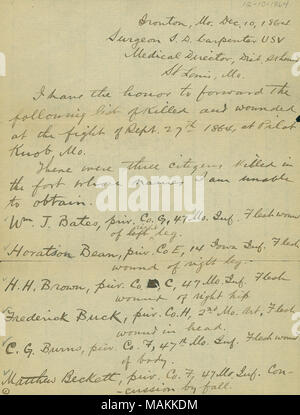 12-10-1864
Ironton, Mo. Dec, 10, 1864
Surgeon S. D. Carpenter USV
Medical Director, Dist. St Louis,
St Louis, Mo.
I have the honor to forward the
following list of killed and wounded
at the fight of Sept. 27th 1864, at Pilot
Knob, Mo.
There were three citizens killed in
the fort whose names I am unable
to obtain.
Wm. J. Bates, priv. Co. G, 47 Mo. Inf. Flesh wound
of left leg.
Horatson Bean, priv. Co E, 14 Iowa Inf. Flesh
wound of right leg.
H. H. Brown, priv. Co C, 47 Mo. Inf. Flesh
wound of right hip
Frederick Buck, priv. Co. H, 2nd Mo. Art, Flesh
wound in head.
C. G. Burns, priv. Co. F, 47th Mo. Inf. Flesh wound
of body.
Matthew Beckett, priv. Co. F, 47 Mo. Inf. Con-
cussion by fall.
alamy
Image ID: MAKKDM
www.alamy.com